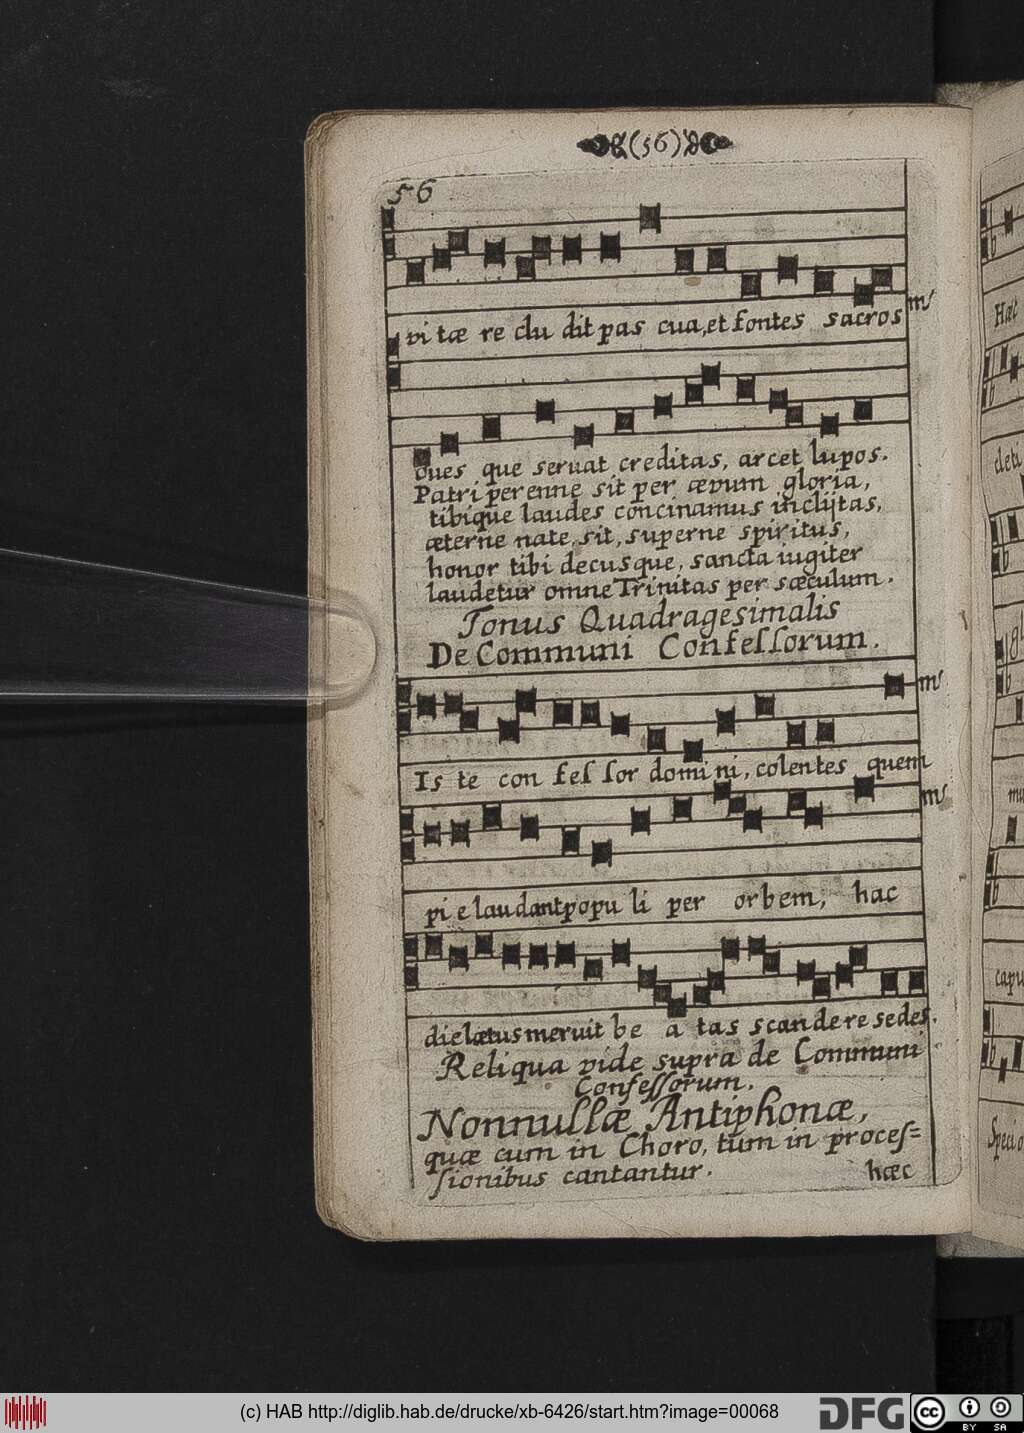 (56)
56
vi tæ re clu dit pas cua, et fontes sacros
oves que servat creditas, arcet lupos.
Patri perenne sit per ævum gloria,
tibique laudes concinamus inclijtas,
æterne nate, sit, superne spiritus,
honor tibi decusque, sancta iugiter
laudetur omne Trinitas per sæculum.
Tonus Quadragesimalis
De Communi Confeſſorum.
Is te con feſ ſor domi ni, colentes quem
pi e laudant popu li per orbem, hac
die lætus meruit be a tas scandere sedes.
Reliqua vide supra de Communi
Confeſſorum.
Nonnullæ Antiphonæ,
quæ cum in Choro, tum in proceſ=
ſionibus cantantur.
hæc
Hæc
capu
Specio
(c) HAB http://diglib.hab.de/drucke/xb-6426/start.htm?image=00068
DFG
cc BY SA